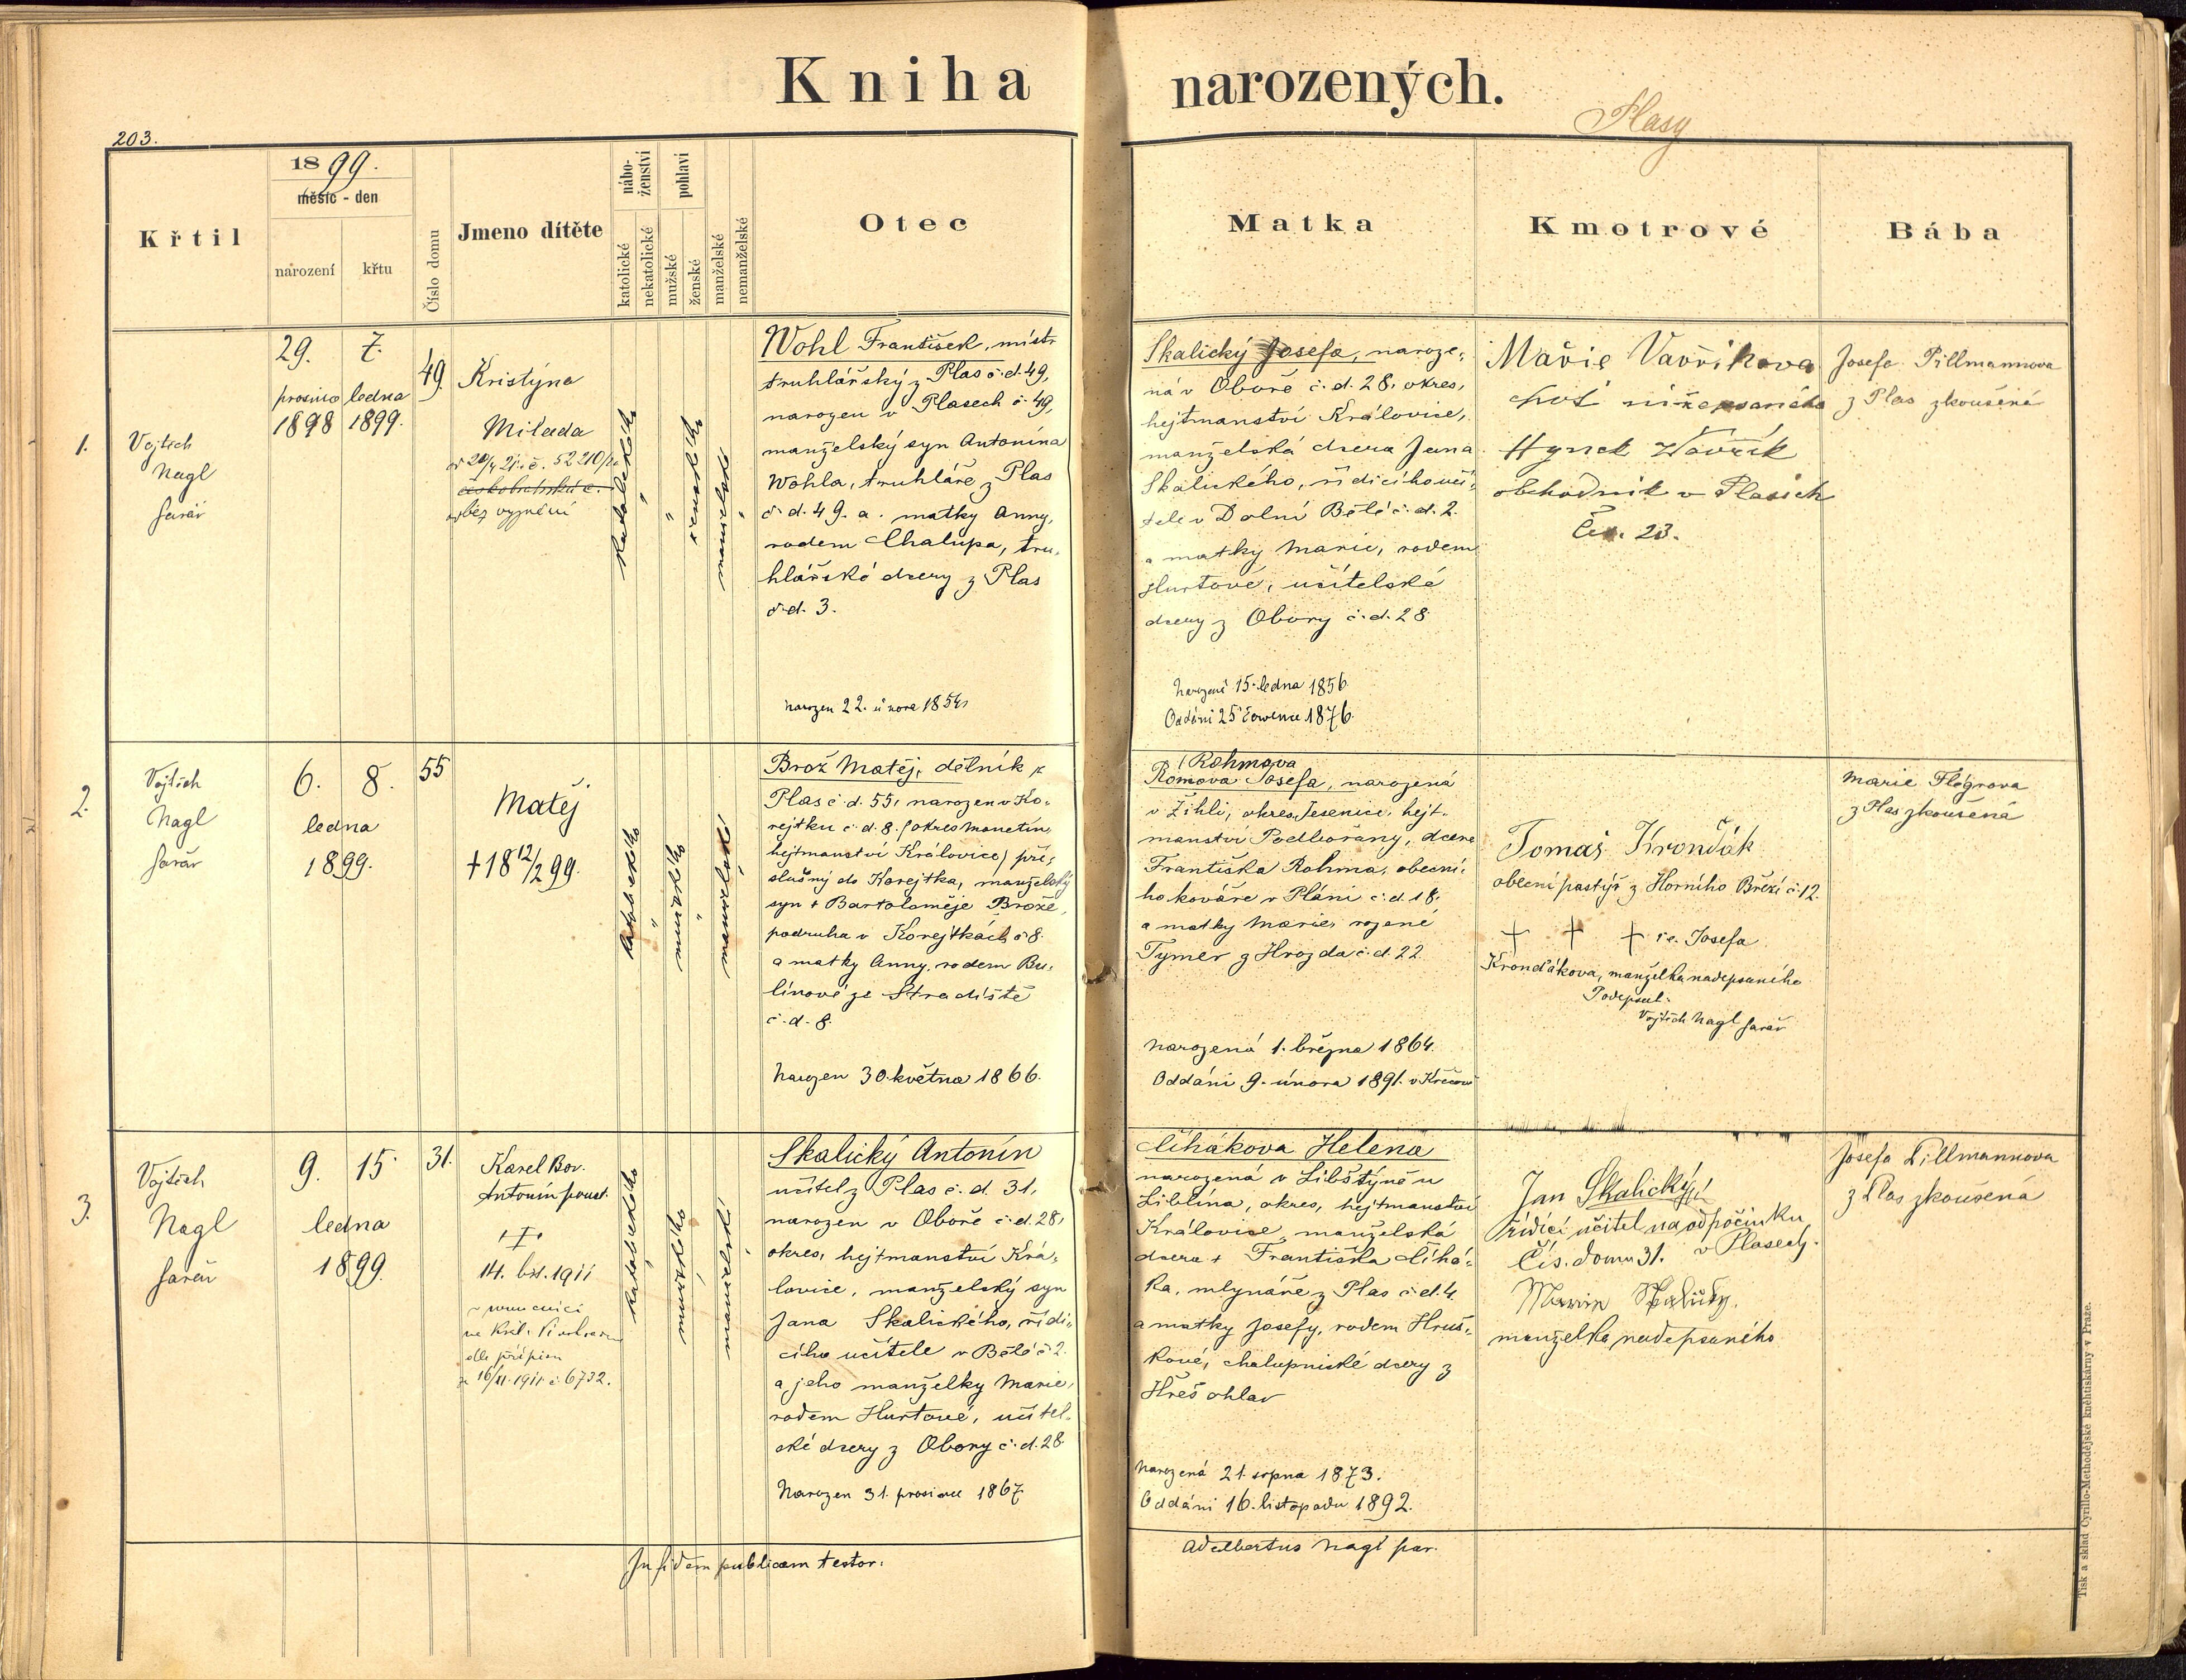 Kniha narozených.
Plasy
203.
Křtil
1899.
měsíc - den
narození
křtu
Číslo domu
Jmeno dítěte
nábo-
ženství
katolické
nekatolické
pohlaví
mužské
ženské
manželské
nemanželské
Otec
Matka
Kmotrové
Bába
1.
Vojtěch
Nagl
farář
29.
prosince
1898
7.
ledna
1899.
49
Kristýna
Milada
52210
bez vyznání
katolického
"
"
ženského
manželské
"
Wohl František, mistr
truhlářský z Plas č. d. 49,
narozen v Plasech č. 49,
manželský syn Antonína
Wohla, truhláře z Plas
č. d. 49. a matky Anny,
rodem Chalupa, tru-
hlářské dcery z Plas
č. d. 3.
narozen 22. února 1854
Skalický Josefa, naroze-
ná v Oboře č. d. 28, okres,
hejtmanství Kralovice,
manželská dcera Jana
Skalického, řídicího uči-
tele v Dolní Bělé č. d. 2.
a matky Marie, rodem
Hurtové, učitelské
dcery z Obory č. d. 28
Narozená 15. ledna 1856
Oddáni 25 července 1876.
Mařie Vavřikova
choť níže psaného
Hynek Vavřík
obchodník v Plasích
Čís. 23.
Josefa Pillmannova
z Plas zkoušená
2.
Vojtěch
Nagl
farář
6. 8.
ledna
1899.
55
Matěj
+ 18 12/2 99.
katolického
"
mužského
"
manželské
Brož Matěj, dělník z
Plas č. d. 55, narozen v Ko-
rejtku č. d. 8. (okres Manetín,
hejtmanství Kralovice) pří-
slušný do Korejtka, manželský
syn + Bartoloměje Brože,
podruha v Korejtkách č 8.
a matky Anny, rodem Bu-
línové ze Stradiště
č. d. 8.
Narozen 30. května 1866.
/Rohmova
Romova Josefa, narozená
v Žihli, okres Jesenice, hejt-
manství Podbořany, dcera
Františka Rohma, obecní-
ho kováře v Pláni č. d. 18.
a matky Marie, rozené
Tymer z Hrozda č. d. 22
Narozená 1. března 1864.
Oddáni 9. února 1891. v
Tomáš Kronďák
obecní pastýř z Horního Březí č. 12.
+ + + Josefa
Kronďákova, manželka nadepsaného
Podepsal:
Vojtěch Nagl farář
Marie Flégrova
z Plas zkoušená
3.
Vojtěch
Nagl
farář
9. 15
ledna
1899.
31.
Karel Bor.
Antonín
+
14. 1911
dle přípisu
16/11. 1911 č 6732.
katolického
"
mužského
"
manželské
"
Skalický Antonín
učitel z Plas č. d. 31,
narozen v Oboře č. d. 28,
okres, hejtmanství Kra-
lovice, manželský syn
Jana Skalického, řídi-
cího učitele v Bělé č 2.
a jeho manželky Marie,
rodem Hurtové, učitel-
ské dcery z Obory č. d. 28
Narozen 31. prosince 1867
Čihákova Helena
narozená v Libštýně u
Liblína, okres, hejtmanství
Kralovice, manželská
dcera + Františka Čihá-
ka, mlynáře z Plas č. d. 4.
a matky Josefy, rodem Hruš-
kové, chalupnické dcery z
Hřešohlav
Narozená 21. srpna 1873.
Oddáni 16. listopadu 1892.
Jan Skalický
řídící učitel na odpočinku
Čís. domu 31. v Plasech.
Marie Skalický.
manželka nadepsaného
Josefa Pillmannova
z Plas zkoušená
In fidem publicam testor:
Adalbertus Nagl par.
Tisk a sklad Cyrillo-Methodějské kněhtiskárny v Praze.